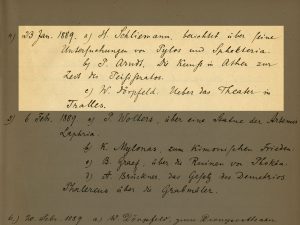 1) 23 Jan. 1889. a) H. Schliemann, berichtet über seine
Untersuchungen von Pylos und Sphakteria.
b) P. Arndt. Die Kunst in Athen zur
Zeit des Peisistratos.
c) W. Dörpfeld. Ueber das Theater in
Tralles.
2) 6 Feb. 1889. a) P. Wolters, über eine Statue der Artemis
Laphria.
b) K. Mylonas, zum Kimonischen Frieden
c) B. Graef, über die Ruinen von Phokäa.
d) A. Brückner, das Gesetz des Demetrios
Phalereus über die Grabmäler.
20. Febr. 1889 a) W. Dörpfeld, zum